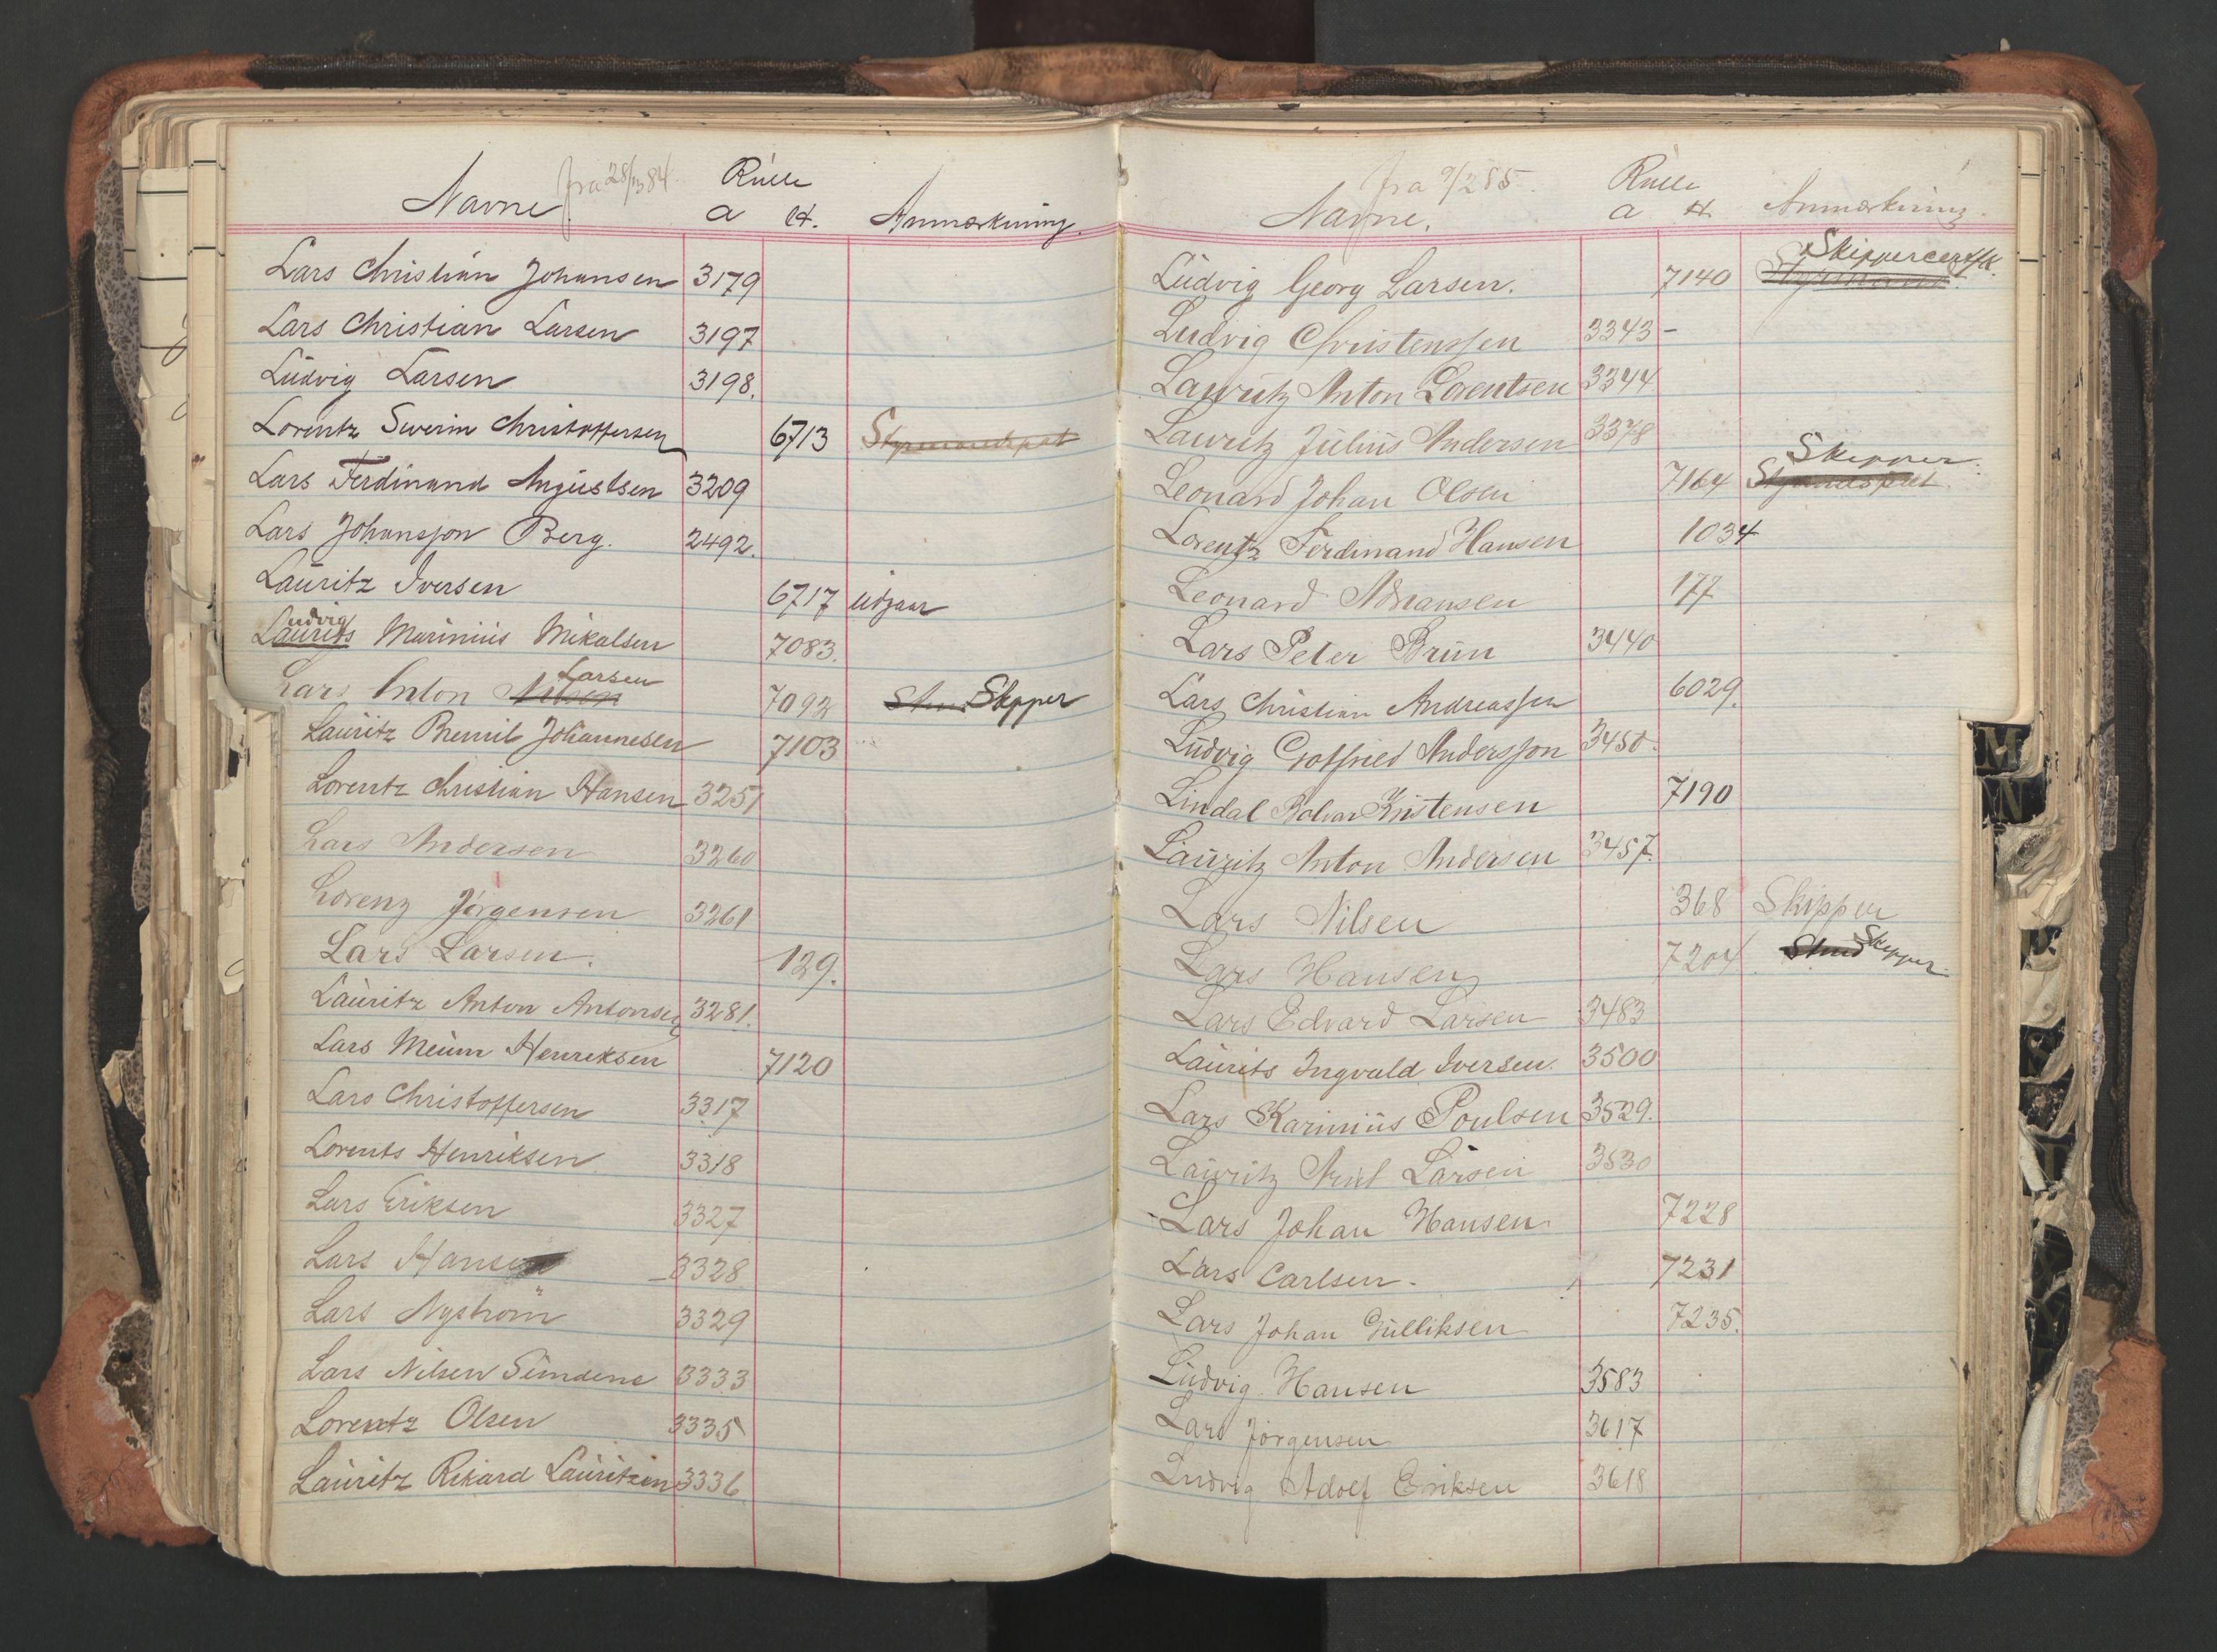 Navne. fra 28/11 84. Rulle
a H. Anmærkning.
Lars Christian Johansen 3179
Lars Christian Larsen 3197
Ludvig Larsen 3198.
Lorentz Severin Christoffersen 6713 Styrmandspat
Lars Ferdinand Augustsen 3209
Lars Johansson Berg. 2492.
Lauritz Iversen 6717 udgaar
Ludvig
Laurits Marinius Mikalsen 7083.
Larsen
Lars Anton Nilsen 7093 Skipper
Lauritz Bernit Johannesen 7103
Lorentz Christian Hansen 3251
Lars Andersen 3260
Lorenz Jörgensen 3261
Lars Larsen. 129.
Lauritz Anton Antonsen 3281.
Lars Meum Henriksen 7120
Lars Christoffersen 3317
Lorents Henriksen 3318
Lars Eriksen 3327
Lars Hansen 3328
Lars Nyström 3329
Lars Nilsen Sundene 3333
Lorentz Olsen 3335
Lauritz Rikard Lauritzen 3336
fra 9/2 85. Rulle
Navne. a H. Anmærkning.
Skippercertfk.
Ludvig Georg Larsen. 7140 Styrmand
Ludvig Christenssen 3343 -
Lauritz Anton Lorentsen 3344
Lauritz Julius Andersen 3378
Skipper.
Leonard Johan Olsen 7164
Lorentz Ferdinand Hansen 1034
Leonard Adriansen 177
Lars Peter Brun 3440
Lars Christian Andreassen 6029.
Ludvig Gotfried Andersson 3450.
Lindal Kristensen 7190
Lauritz Anton Andersen 3457.
Lars Nilsen 368 Skipper
Lars Hansen 7204 Skipper
Lars Edvard Larsen 3483
Laurits Ingvald Iversen. 3500
Lars Karinius Poulsen 3529.
Lauritz Larsen 3530
Lars Johan Hansen 7228
Lars Carlsen. 7231
Lars Johan Gulliksen 7235.
Ludvig Hansen 3583
Lars Jörgensen 3617
Ludvig Adolf Eriksen 3618